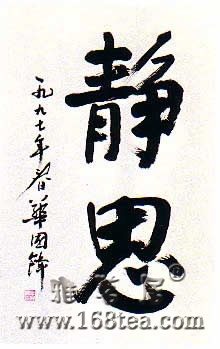 静思
一九九七年春 華国锋
雅茗居®
www.168tea.com